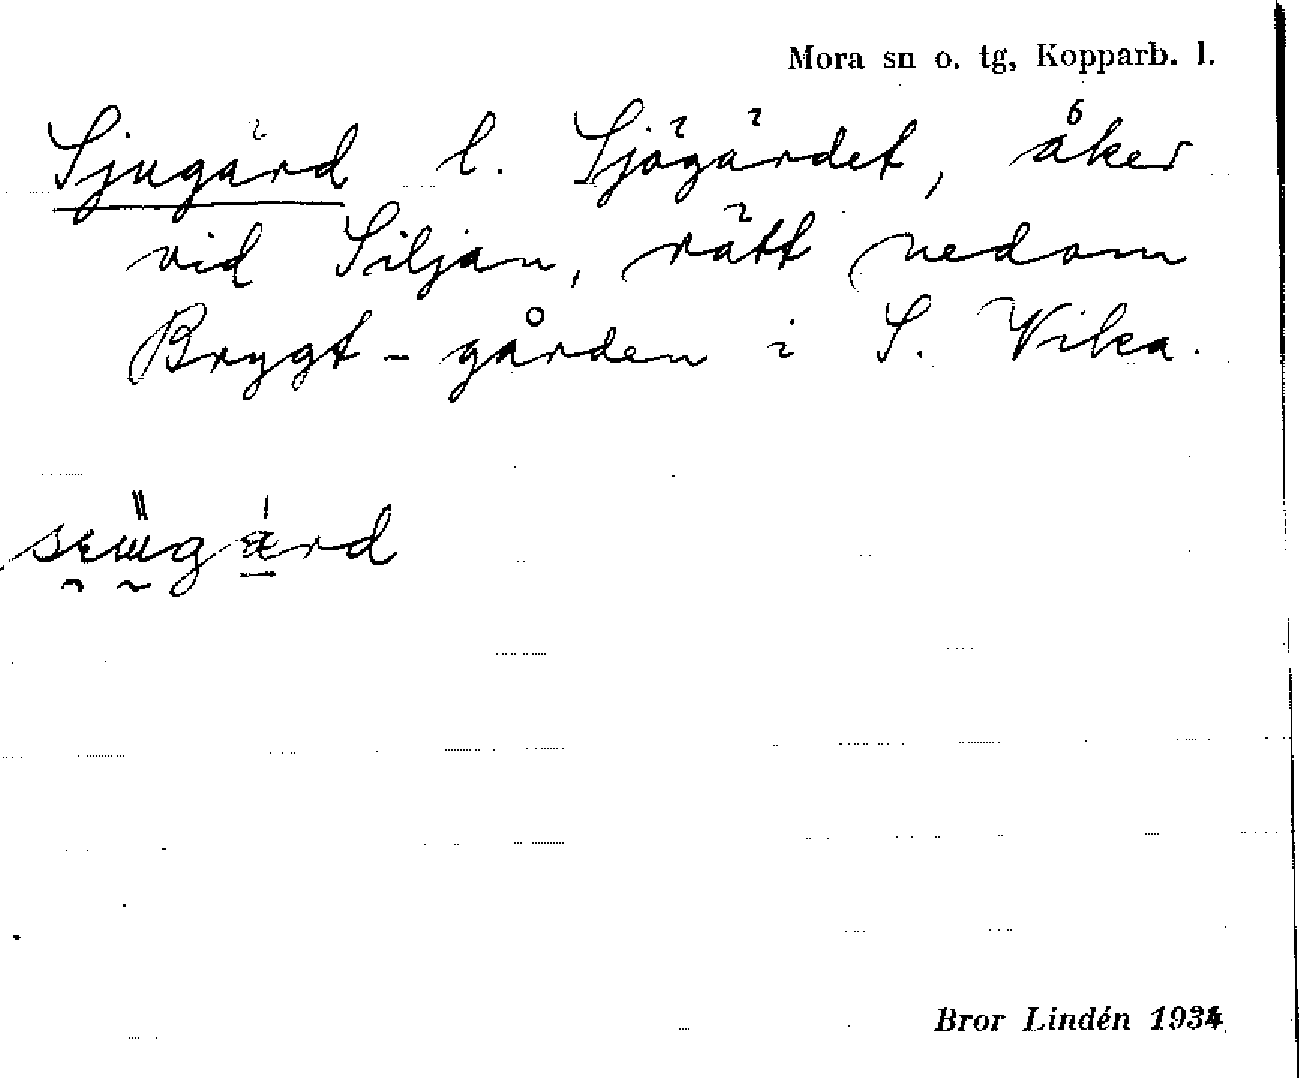 Mora sn o. tg, Kopparb. l.
Sjugärd l. Sjögärdet, åker
vid Siljan, rätt nedom
Brygt-gården i S. Vika.
Bror Lindén 1934